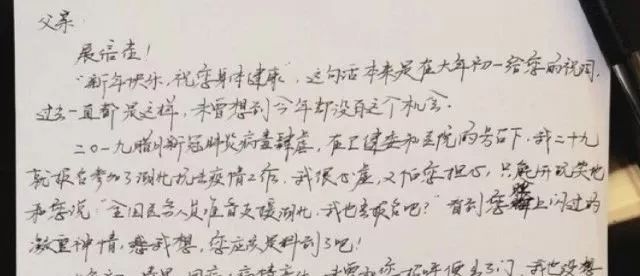 父亲：
展信佳！
“新年快乐，祝您身体健康”，这句话本来是在大年初一给您的祝词，
过去一直都是这样，未曾想到今年却没有这个机会。
二〇一九腊月新冠肺炎病毒肆虐，在卫健委和医院的号召下，我二十九
就报名参加了湖北抗击疫情工作，我很心虚，又怕您担心，只能开玩笑地
和您说“全国医务人员准备支援湖北，我也去报名吧？”看到您脸上闪过的
激重神情，我想，您应该是料到了吧！
疫情